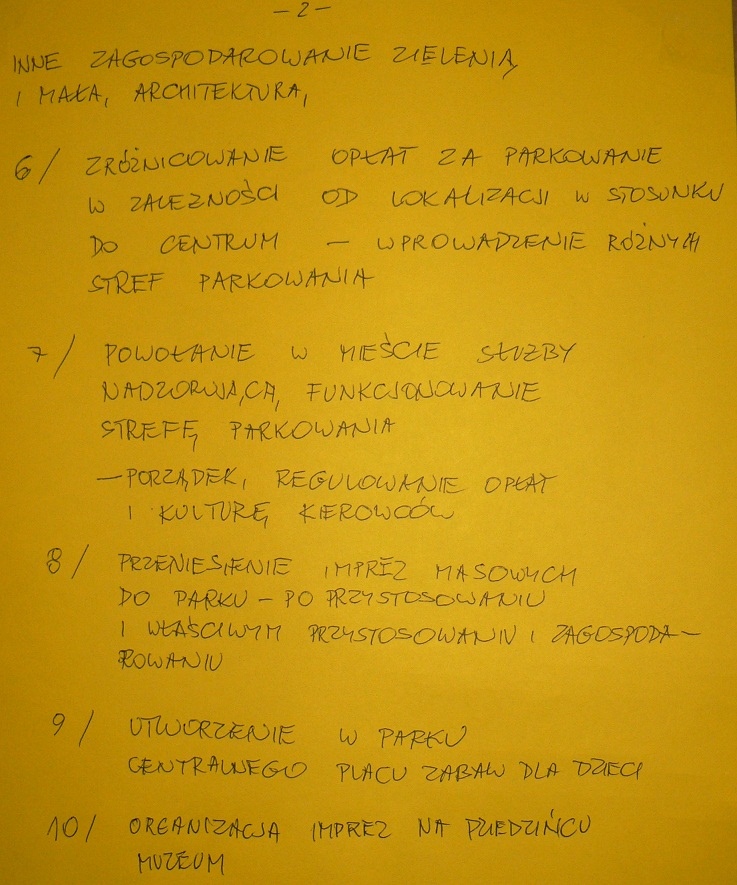 – 2 –
INNE ZAGOSPODAROWANIE ZIELENIĄ
I MAŁĄ, ARCHITEKTURĄ,
6/ ZRÓŻNICOWANIE OPŁAT ZA PARKOWANIE
W ZALEŻNOŚCI OD LOKALIZACJI W STOSUNKU
DO CENTRUM – WPROWADZENIE RÓŻNYCH
STREF PARKOWANIA
7/ POWOŁANIE W MIEŚCIE SŁUŻBY
NADZORUJĄCĄ FUNKCJONOWANIE
STREFĘ PARKOWANIA
– PORZĄDEK, REGULOWANIE OPŁAT
I KULTURĘ KIEROWCÓW
8/ PRZENIESIENIE IMPREZ MASOWYCH
DO PARKU – PO PRZYSTOSOWANIU
I WŁAŚCIWYM PRZYSTOSOWANIU I ZAGOSPODA–
ROWANIU
9/ UTWORZENIE W PARKU
CENTRALNEGO PLACU ZABAW DLA DZIECI
10/ ORGANIZACJA IMPREZ NA DZIEDZIŃCU
MUZEUM